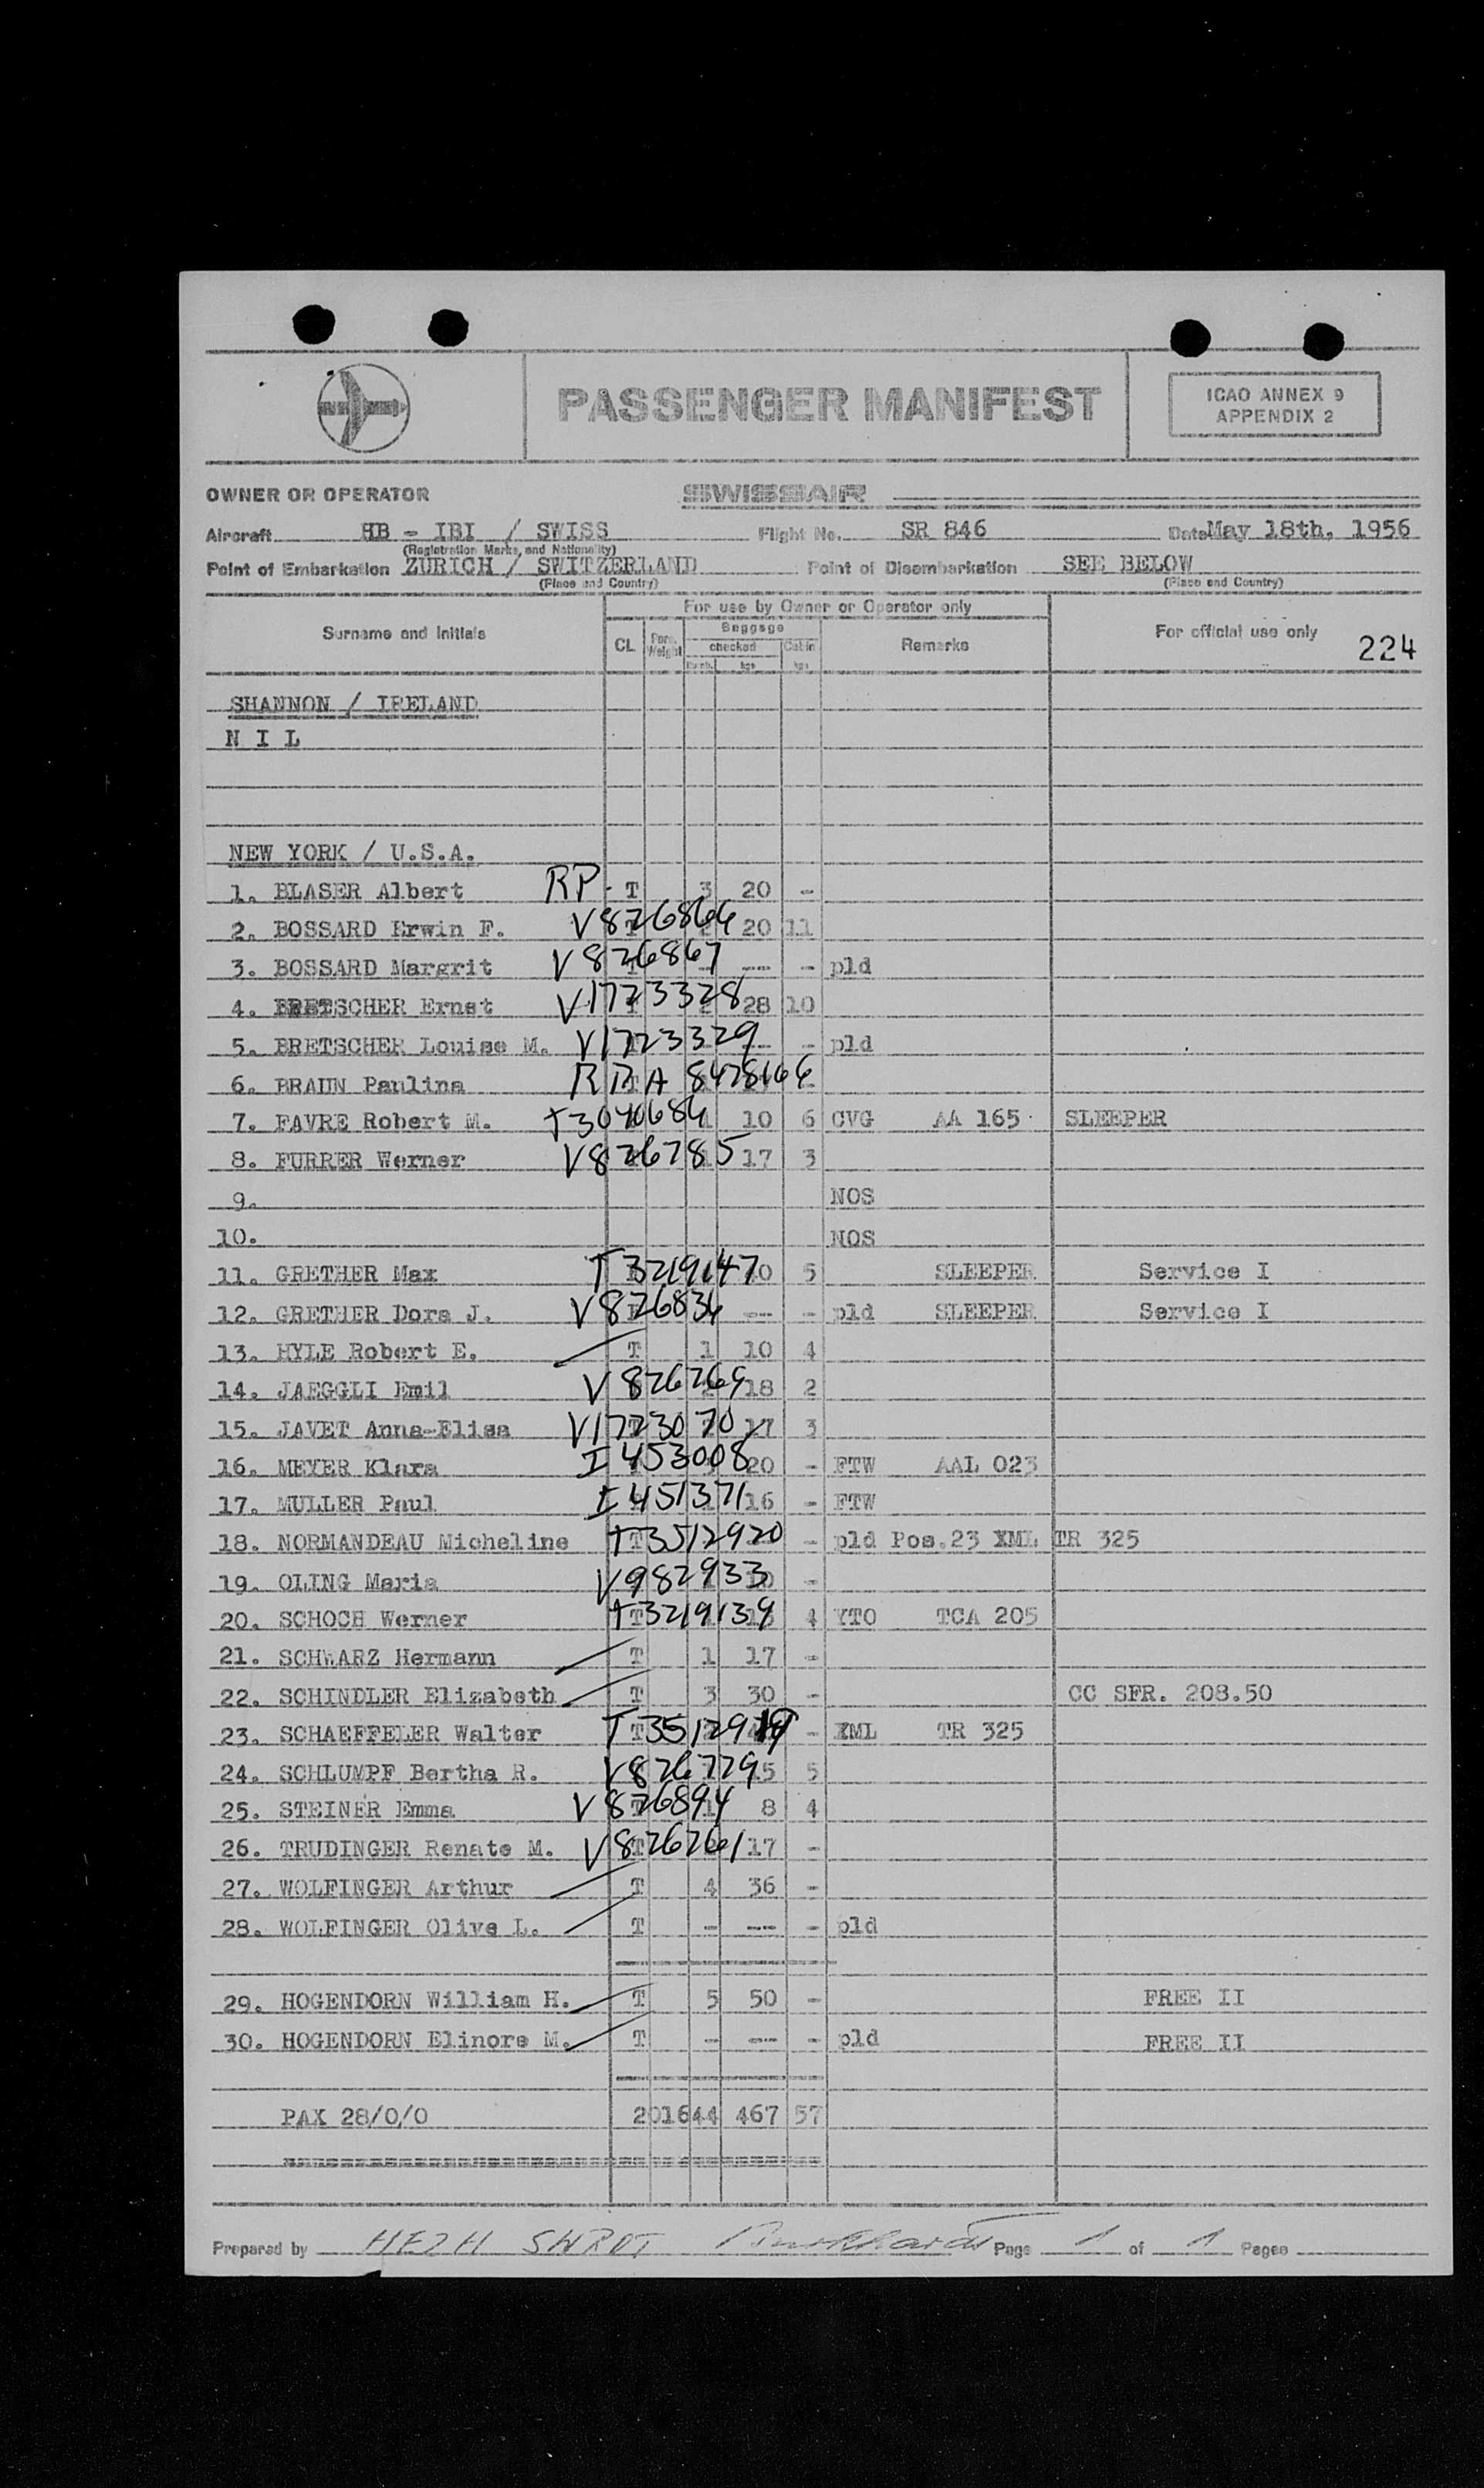 PASSENGER MANIFEST
ICAO ANNEX 9
APPENDIX 2
OWNER OR OPERATOR SWISSAIR
Aircraft HB - IBI / SWISS Flight No. SR 846 Date May 18th, 1956
(Registration Marks and Nationality)
Point of Embarkation ZURICH / SWITZERLAND Point of Disembarkation SEE BELOW
(Place and Country) (Place and Country)
For use by Owner or Operator only
Surname and Initials CL Pers. Weight Baggage checked Numb. kgs Cabin kgs Remarks For official use only 224
SHANNON / IRELAND
N I L
NEW YORK / U.S.A.
1. BLASER Albert RP. T 3 20 -
2. BOSSARD Erwin F. V826866 20 11
3. BOSSARD Margrit V826867 --- - pld
4. BRETSCHER Ernst V1723328 28 10
5. BRETSCHER Louise M. V1723329 - pld
6. BRAUN Paulina RBA 8478166
7. FAVRE Robert M. T3040686 1 10 6 CVG AA 165 SLEEPER
8. FURRER Werner V826785 17 3
9. NOS
10. NOS
11. GRETHER Max T3219147 5 SLEEPER Service I
12. GRETHER Dora J. V826836 --- - pld SLEEPER Service I
13. HYLE Robert E. T 1 10 4
14. JAEGGLI Emil V826769 18 2
15. JAVET Anna-Elisa V1723070 17 3
16. MEYER Klara I453008 20 - FTW AAL 023
17. MULLER Paul I451371 16 - FTW
18. NORMANDEAU Micheline T3512920 - pld Pos.23 XML TR 325
19. OLING Maria V982933 -
20. SCHOCH Werner T3219139 4 YTO TCA 205
21. SCHWARZ Hermann T 1 17 -
22. SCHINDLER Elizabeth T 3 30 - CC SFR. 208.50
23. SCHAEFFELER Walter T3512919 - XML TR 325
24. SCHLUMPF Bertha R. V826729 5
25. STEINER Emma V826894 8 4
26. TRUDINGER Renate M. V826261 17 -
27. WOLFINGER Arthur T 4 36 -
28. WOLFINGER Olive L. T - --- - pld
29. HOGENDORN William H. T 5 50 - FREE II
30. HOGENDORN Elinore M. T - --- - pld FREE II
PAX 28/0/0 201644 467 57
Prepared by HEZH Page 1 of 1 Pages